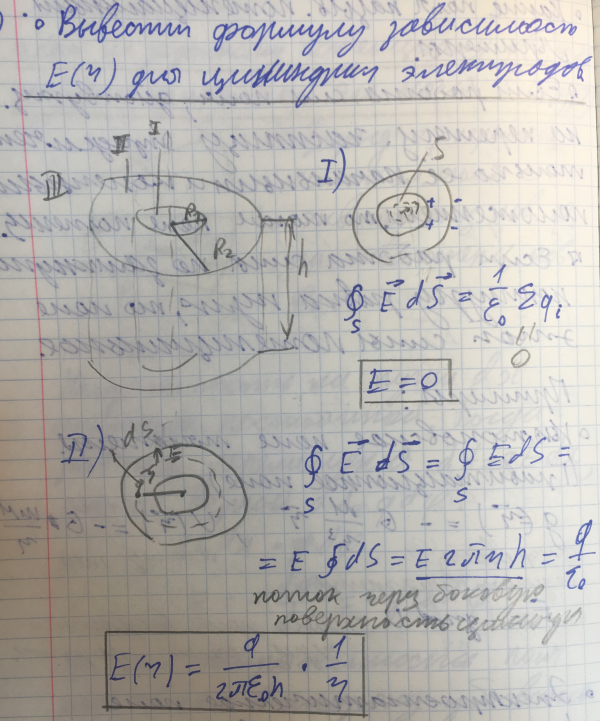 • Вывести формулу зависимость
E(r) для цилиндрич электродов
I
II
III
R₁
R₂
h
I)
S
+ -
+ -
∮_S E⃗ dS⃗ = 1/ε₀ Σqᵢ
0
E = 0
II)
dS⃗
E
r
∮_S E⃗ dS⃗ = ∮_S E dS =
= E ∮ dS = E 2πrh = q/ε₀
поток через боковую
поверхность цилиндра
E(r) = q/2πε₀h · 1/r